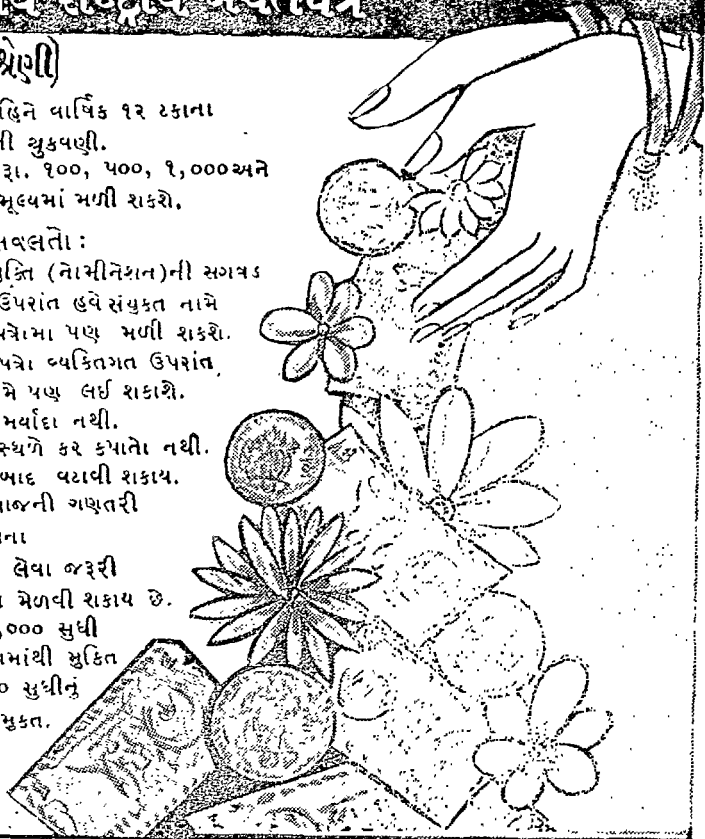 રાષ્ટ્રીય બચતપત્ર
શ્રેણી)
વાર્ષિક ૧૨ ટકાના
ચુકવણી.
રૂા. ૧૦૦, ૫૦૦, ૧,૦૦૦અને
મૂલ્યમાં મળી શકશે.
સવલતો :
(નોમીનેશન)ની સગવડ
ઉપરાંત હવે સંયુકત નામે
પણ મળી શકશે.
વ્યકિતગત ઉપરાંત,
પણ લઈ શકાશે.
મર્યાદા નથી.
સ્થળે કર કપાતો નથી.
બાદ વટાવી શકાય.
ગણતરી
લેવા જરૂરી
મેળવી શકાય છે.
,૦૦૦ સુધી
માંથી મુકિત
૦ સુધીનું
મુકત.